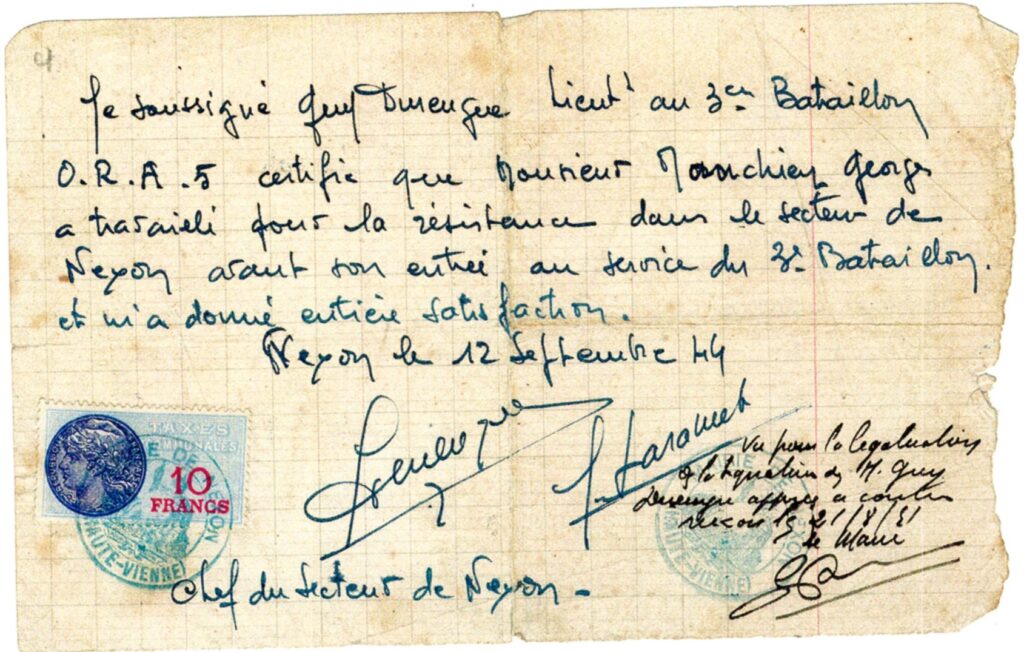 4
Je soussigné Guy Durengue Lieut^t au 3^em Bataillon
O.R.A.5 certifie que Monsieur Georges
a travaillé pour la résistance dans le secteur de
Nexon avant son entrée au service du 3^e Bataillon.
et m'a donné entière satisfaction.
Nexon le 12 Septembre 44
TAXES
COMMUNALES
10
FRANCS
MAIRIE DE NEXON
HAUTE-VIENNE
Vu pour la légalisation
de la signature de M. Guy
Durengue apposée ci contre
Nexon le 21/8/51
le Maire
MAIRIE DE NEXON
HAUTE-VIENNE
Chef du secteur de Nexon -